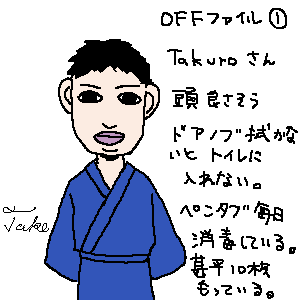 OFFファイル①
Takuroさん
頭良さそう
ドアノブ拭かな
いと トイレに
入れない。
ペンタブ毎日
消毒している。
甚平10枚
もっている。
Take